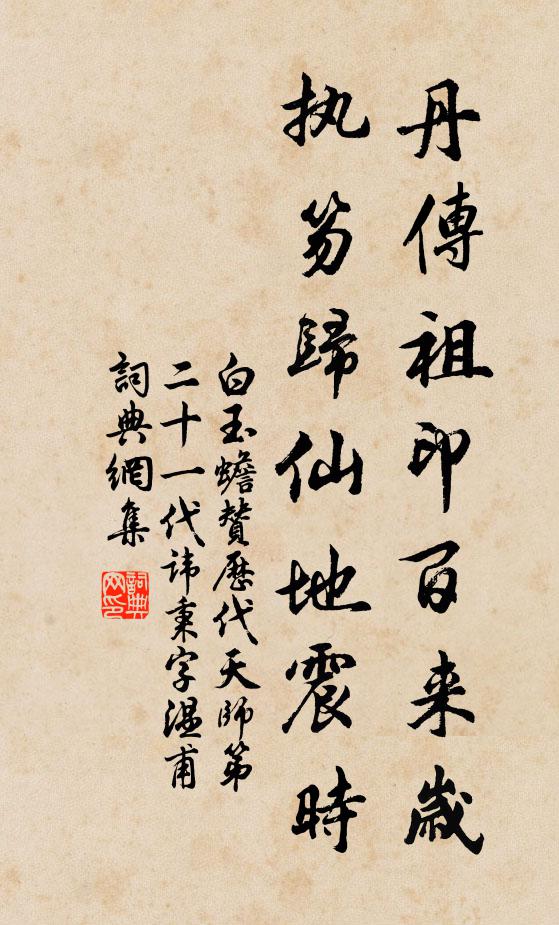 丹傳祖印百来歲
执笏歸仙地震時
白玉蟾贊歷代天師第
二十一代諱秉字温甫
詞典網集
詞典网印